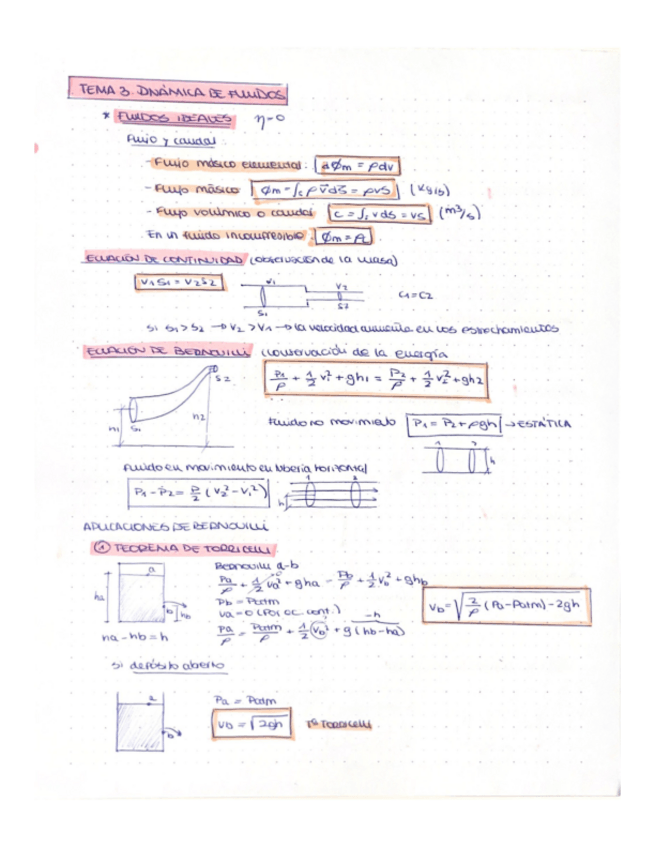 TEMA 3. DINÁMICA DE FLUIDOS
* FLUIDOS IDEALES η=0
Flujo y caudal:
- Flujo másico elemental: dφm = ρdv
- Flujo másico φm = ∫s ρv̄ds̄ = ρvs (kg/s)
- Flujo volúmico o caudal C = ∫s vds = vs (m³/s)
. En un fluido incompresible: φm = ρc
ECUACIÓN DE CONTINUIDAD (conservación de la masa)
V1 S1 = V2 S2
V1
V2
S1
S2
C1 = C2
si S1 > S2 → V2 > V1 → la velocidad aumenta en los estrechamientos
ECUACIÓN DE BERNOUILLI (conservación de la energía
P1/ρ + 1/2 v1² + gh1 = P2/ρ + 1/2 v2² + gh2
S2
h2
h1
S1
Fluido no movimiento P1 = P2 + ρgh → ESTÁTICA
1 2
h
Fluido en movimiento en tubería horizontal
P1 - P2 = ρ/2 (v2² - v1²)
1 2
h
APLICACIONES DE BERNOUILLI
① TEOREMA DE TORRICELLI
a
ha
b
hb
ha - hb = h
Bernouilli a-b
Pa/ρ + 1/2 va² + gha = Pb/ρ + 1/2 vb² + ghb
Pb = Patm
va = 0 (Por ec. cont.)
-h
Pa/ρ = Patm/ρ + 1/2 vb² + g (hb - ha)
vb = √2/ρ (Pa - Patm) - 2gh
si depósito abierto
a
b
Pa = Patm
vb = √2gh Tª TORRICELLI